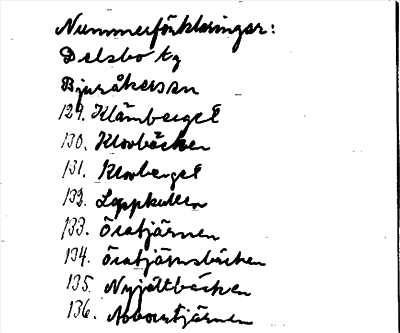 Nummerförklaringar:
Delsbo tg
Bjuråkers sn
129. Klämberget
130. Klovbäcken
131. Klovberget
132. Lappkullen
133. Öratjärnen
134. Öratjärnsbäcken
135. Nyjättbäcken
136.